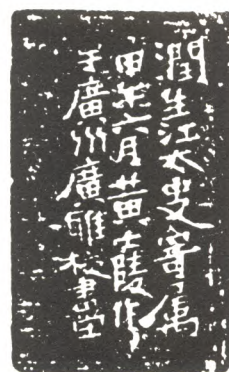 潤生江太史寄屬
甲午六月黃士陵作
于廣州廣雅校書堂